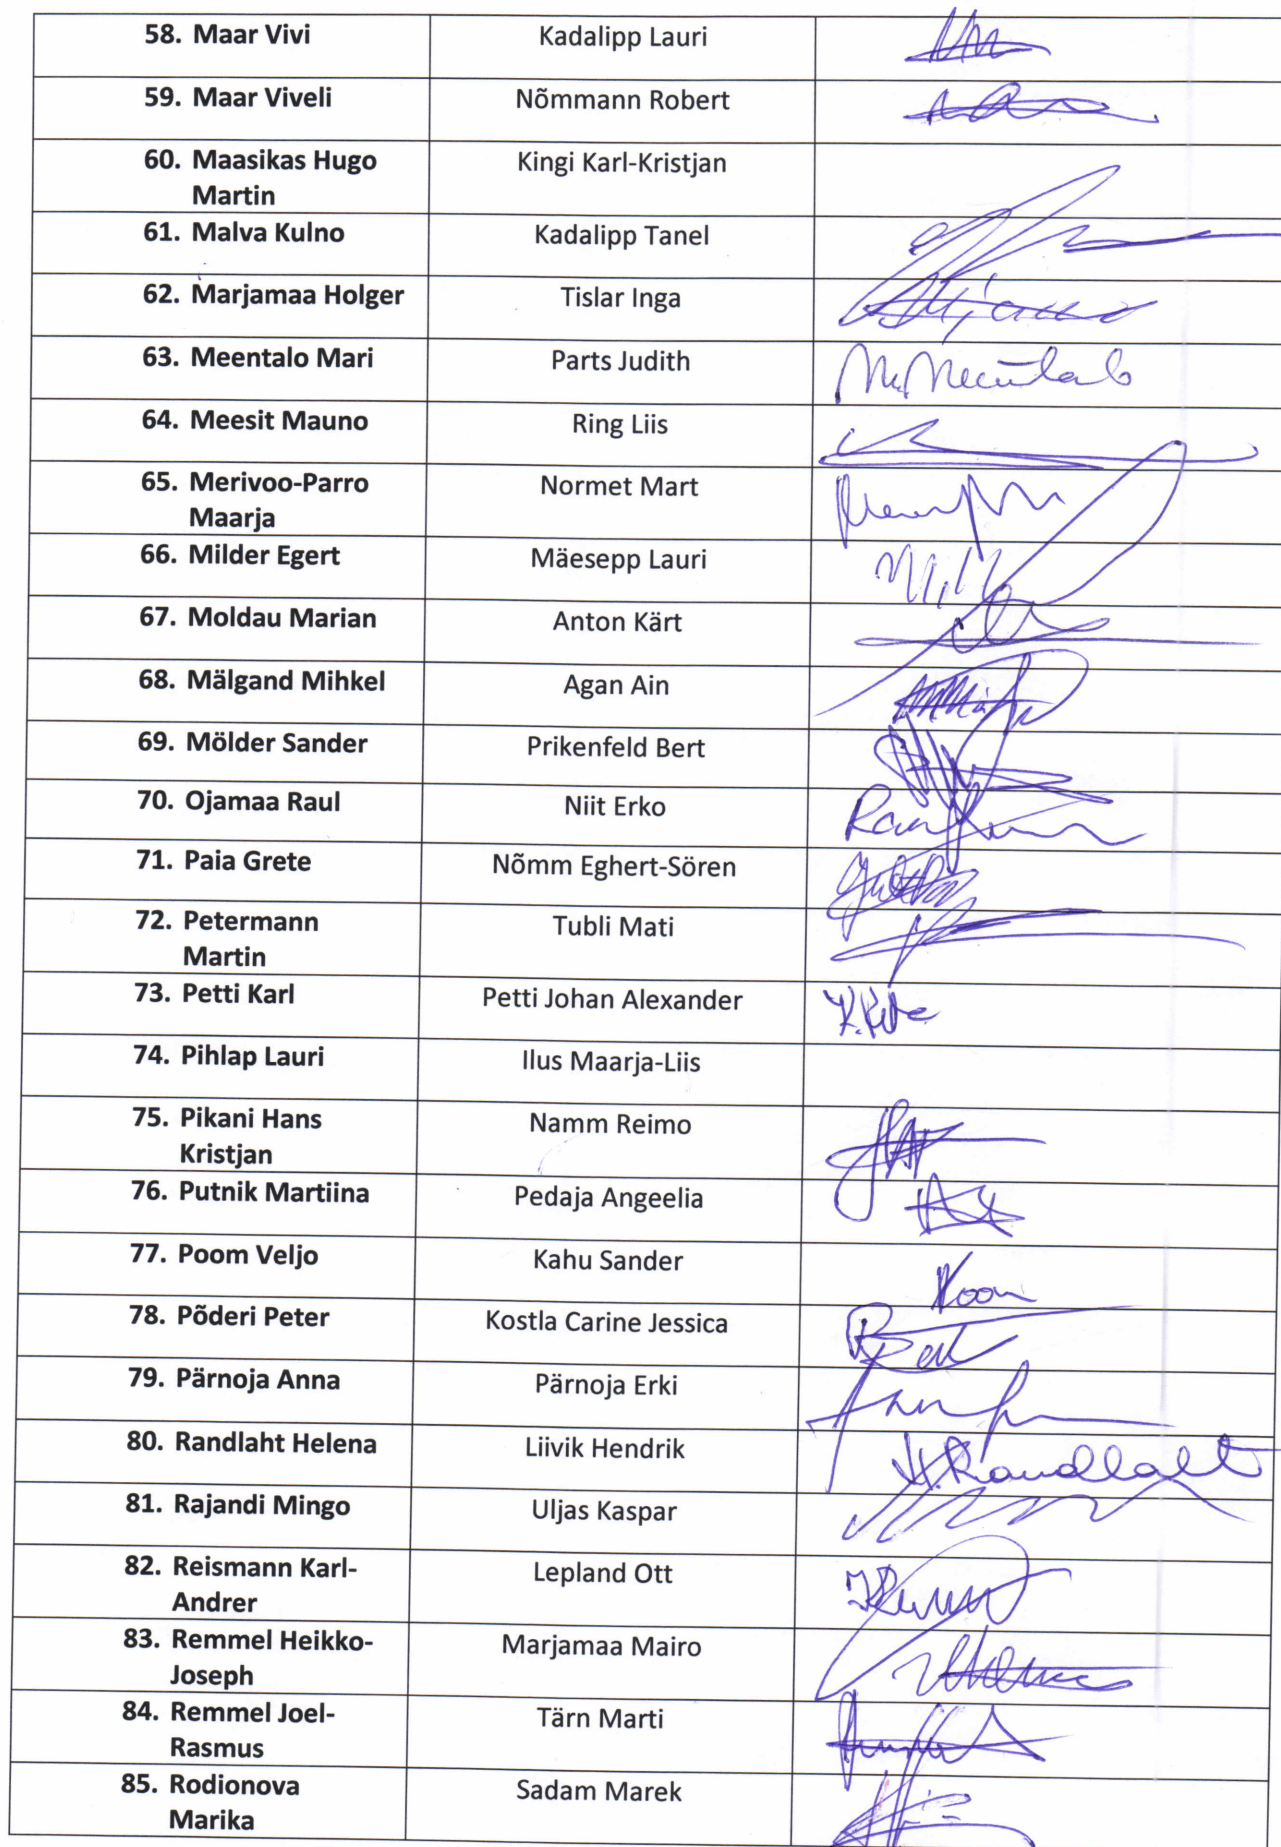 58. Maar Vivi Kadalipp Lauri
59. Maar Viveli Nõmmann Robert
60. Maasikas Hugo Kingi Karl-Kristjan
Martin
61. Malva Kulno Kadalipp Tanel
62. Marjamaa Holger Tislar Inga
63. Meentalo Mari Parts Judith
64. Meesit Mauno Ring Liis
65. Merivoo-Parro Normet Mart
Maarja
66. Milder Egert Mäesepp Lauri
67. Moldau Marian Anton Kärt
68. Mälgand Mihkel Agan Ain
69. Mölder Sander Prikenfeld Bert
70. Ojamaa Raul Niit Erko
71. Paia Grete Nõmm Eghert-Sören
72. Petermann Tubli Mati
Martin
73. Petti Karl Petti Johan Alexander
74. Pihlap Lauri Ilus Maarja-Liis
75. Pikani Hans Namm Reimo
Kristjan
76. Putnik Martiina Pedaja Angeelia
77. Poom Veljo Kahu Sander
78. Põderi Peter Kostla Carine Jessica
79. Pärnoja Anna Pärnoja Erki
80. Randlaht Helena Liivik Hendrik H. Randlaht
81. Rajandi Mingo Uljas Kaspar
82. Reismann Karl- Lepland Ott
Andrer
83. Remmel Heikko- Marjamaa Mairo
Joseph
84. Remmel Joel- Tärn Marti
Rasmus
85. Rodionova Sadam Marek
Marika